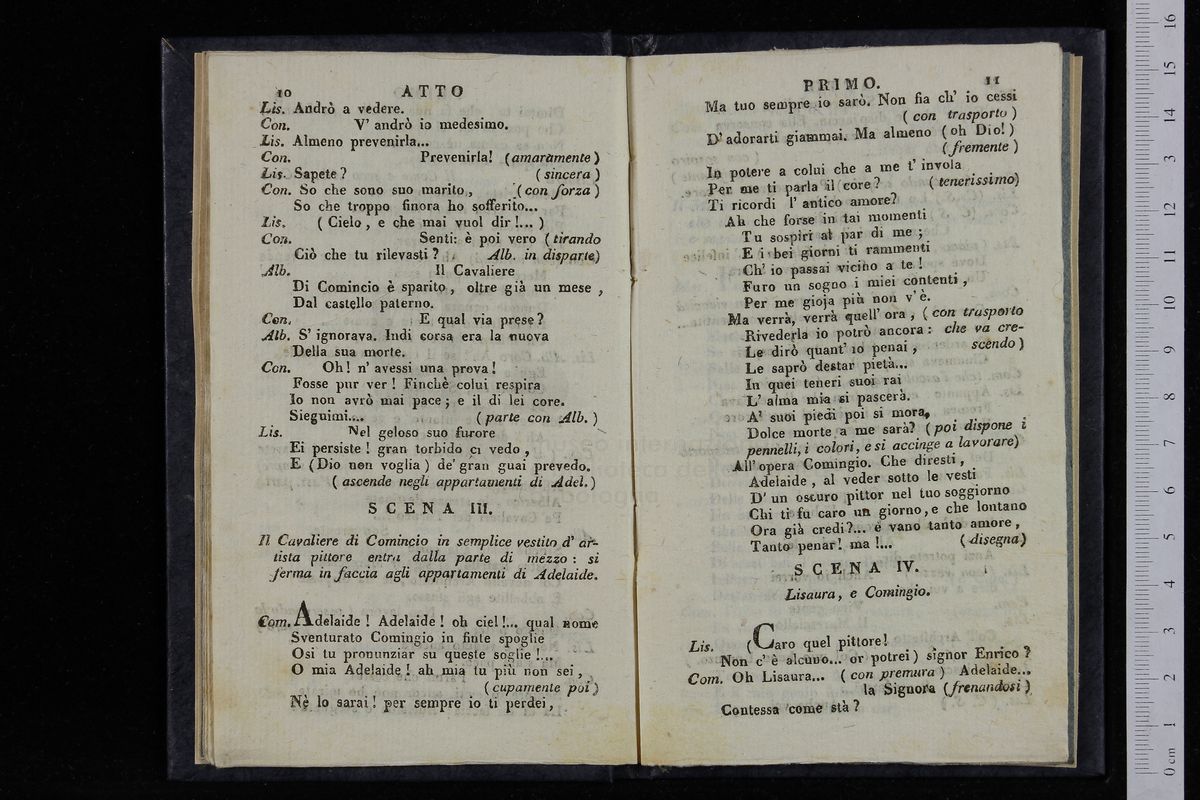 10 ATTO
Lis. Andrò a vedere.
Con. V' andrò io medesimo.
Lis. Almeno prevenirla...
Con. Prevenirla! (amaramente)
Lis. Sapete? (sincera)
Con. So che sono suo marito, (con forza)
So che troppo finora ho sofferito...
Lis. (Cielo, e che mai vuol dir!...)
Con. Senti: è poi vero (tirando
Ciò che tu rilevasti? Alb. in disparte)
Alb. Il Cavaliere
Di Comincio è sparito, oltre già un mese,
Dal castello paterno.
Con. E qual via prese?
Alb. S' ignorava. Indi corsa era la nuova
Della sua morte.
Con. Oh! n' avessi una prova!
Fosse pur ver! Finchè colui respira
Io non avrò mai pace; e il di lei core.
Sieguimi.... (parte con Alb.)
Lis. Nel geloso suo furore
Ei persiste! gran torbido ci vedo,
E (Dio non voglia) de' gran guai prevedo.
(ascende negli appartamenti di Adel.)
SCENA III.
Il Cavaliere di Comincio in semplice vestito d' ar-
tista pittore entra dalla parte di mezzo: si
ferma in faccia agli appartamenti di Adelaide.
Com. Adelaide! Adelaide! oh ciel!... qual nome
Sventurato Comingio in finte spoglie
Osi tu pronunziar su queste soglie!...
O mia Adelaide! ah mia tu più non sei,
(cupamente poi)
Nè lo sarai! per sempre io ti perdei,
PRIMO. 11
Ma tuo sempre io sarò. Non fia ch' io cessi
(con trasporto)
D' adorarti giammai. Ma almeno (oh Dio!)
(fremente)
In potere a colui che a me t' invola
Per me ti parla il core? (tenerissimo)
Ti ricordi l' antico amore?
Ah che forse in tai momenti
Tu sospiri al par di me;
E i bei giorni ti rammenti
Ch' io passai vicino a te!
Furo un sogno i miei contenti,
Per me gioja più non v' è.
Ma verrà, verrà quell' ora, (con trasporto
Rivederla io potrò ancora: che va cre-
Le dirò quant' io penai, scendo)
Le saprò destar pietà...
In quei teneri suoi rai
L' alma mia si pascerà.
A' suoi piedi poi si mora,
Dolce morte a me sarà? (poi dispone i
pennelli, i colori, e si accinge a lavorare)
All' opera Comingio. Che diresti,
Adelaide, al veder sotto le vesti
D' un oscuro pittor nel tuo soggiorno
Chi ti fu caro un giorno, e che lontano
Ora già credi?... è vano tanto amore,
Tanto penar! ma!... (disegna)
SCENA IV.
Lisaura, e Comingio.
Lis. (Caro quel pittore!
Non c' è alcuno... or potrei) signor Enrico?
Com. Oh Lisaura... (con premura) Adelaide...
la Signora (frenandosi)
Contessa come stà?